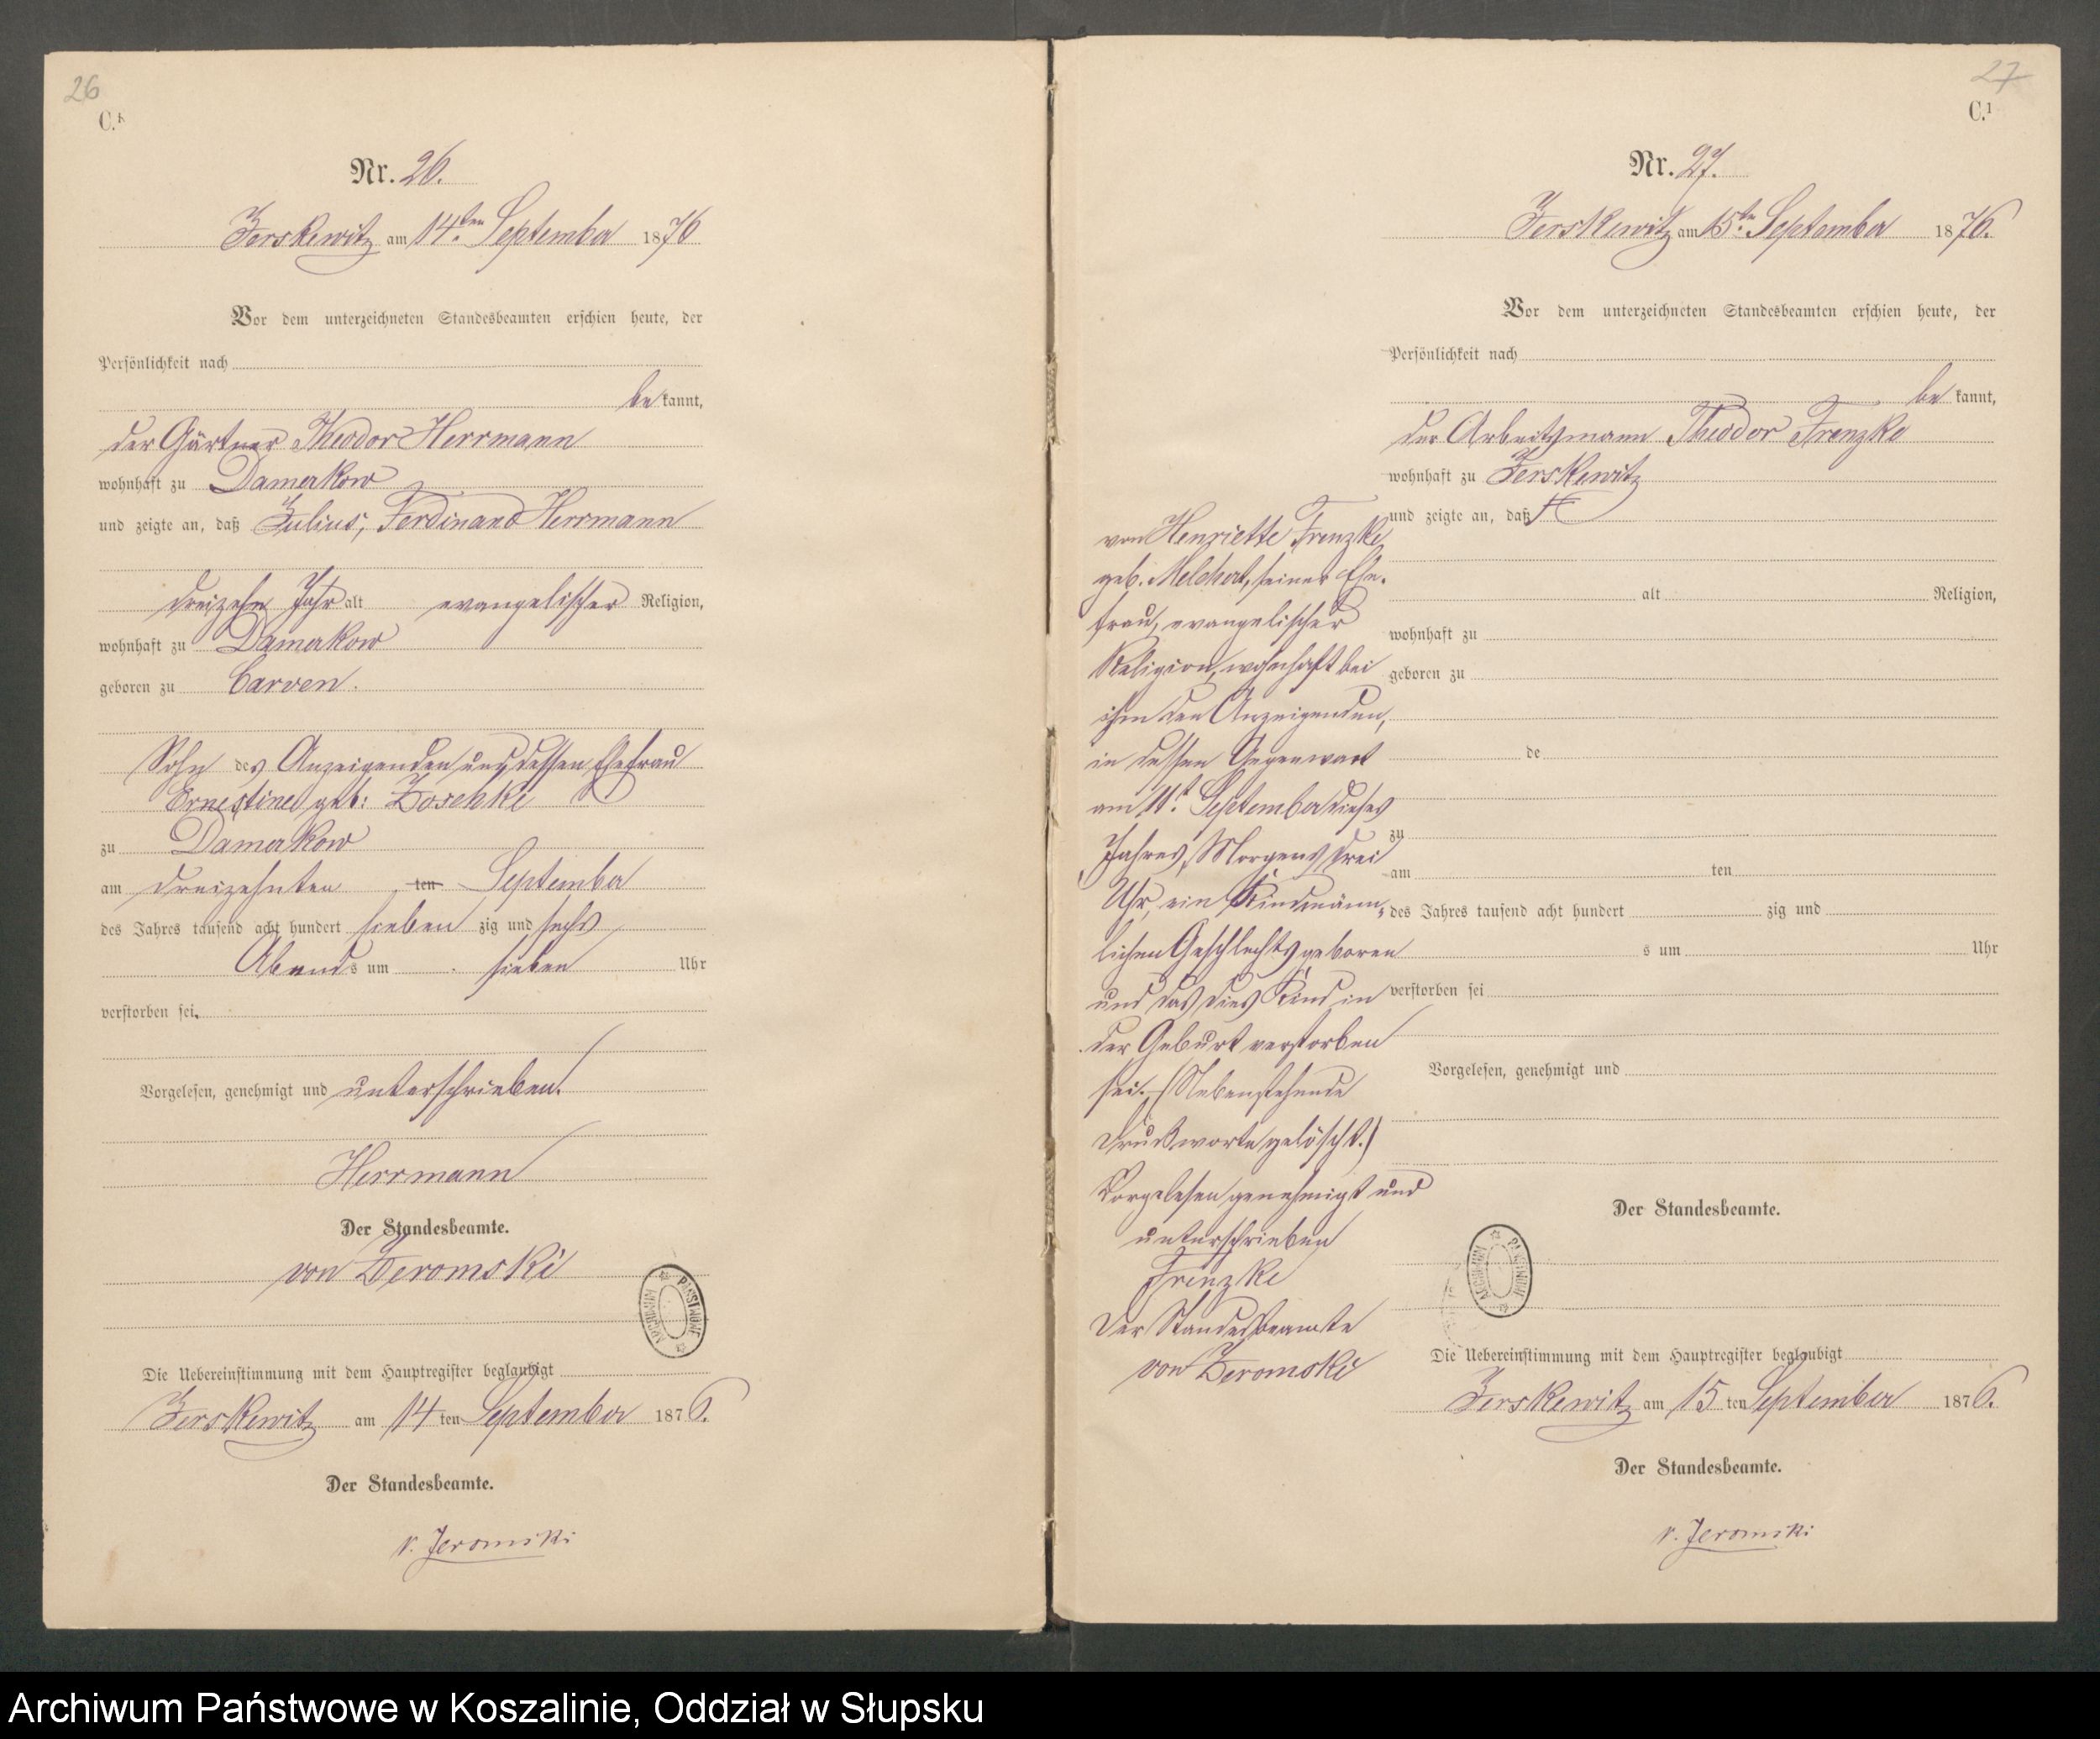 26
C.
Nr. 26.
Jerskewitz am 14ten September 1876
Vor dem unterzeichneten Standesbeamten erschien heute, der
Persönlichkeit nach
be kannt,
der Gärtner Theodor Herrmann
wohnhaft zu Damerkow
und zeigte an, daß Julius, Ferdinand Herrmann
dreizehn Jahr alt evangelischer Religion,
wohnhaft zu Damerkow
geboren zu Carven.
Sohn des Anzeigenden und dessen Ehefrau
Ernestine geb:
zu Damerkow
am dreizehnten ten September
des Jahres tausend acht hundert sieben zig und sechs
Abends um sieben Uhr
verstorben sei.
Vorgelesen, genehmigt und unterschrieben.
Herrmann
Der Standesbeamte.
von Jeromski
ARCHIWUM PAŃSTWOWE
Die Uebereinstimmung mit dem Hauptregister beglaubigt
Jerskewitz am 14 ten September 1876.
Der Standesbeamte.
v. Jeromski
27
C.1
Nr. 27.
Jerskewitz am 15te September 1876.
Vor dem unterzeichneten Standesbeamten erschien heute, der
Persönlichkeit nach
be kannt,
der Arbeitsmann Theodor Frenzke
wohnhaft zu Jerskewitz
und zeigte an, daß
von Henriette Frenzke
geb. Melchert, seiner Ehe-
frau, evangelischer
Religion, wohnhaft bei
ihm den Anzeigenden,
in dessen Gegenwart
am 11t September dieses
Jahres, Morgens drei
Uhr, ein Kind männ-
lichen Geschlechts geboren
und das dies Kind in
der Geburt verstorben
sei. (Nebenstehende
Druckworte gelöscht.)
Vorgelesen genehmigt und
unterschrieben
Frenzke
Der Standesbeamte
von Jeromski
alt Religion,
wohnhaft zu
geboren zu
de
zu
am ten
des Jahres tausend acht hundert zig und
s um Uhr
verstorben sei
Vorgelesen, genehmigt und
Der Standesbeamte.
ARCHIWUM PAŃSTWOWE
Die Uebereinstimmung mit dem Hauptregister beglaubigt
Jerskewitz am 15 ten September 1876.
Der Standesbeamte.
v. Jeromski
Archiwum Państwowe w Koszalinie, Oddział w Słupsku